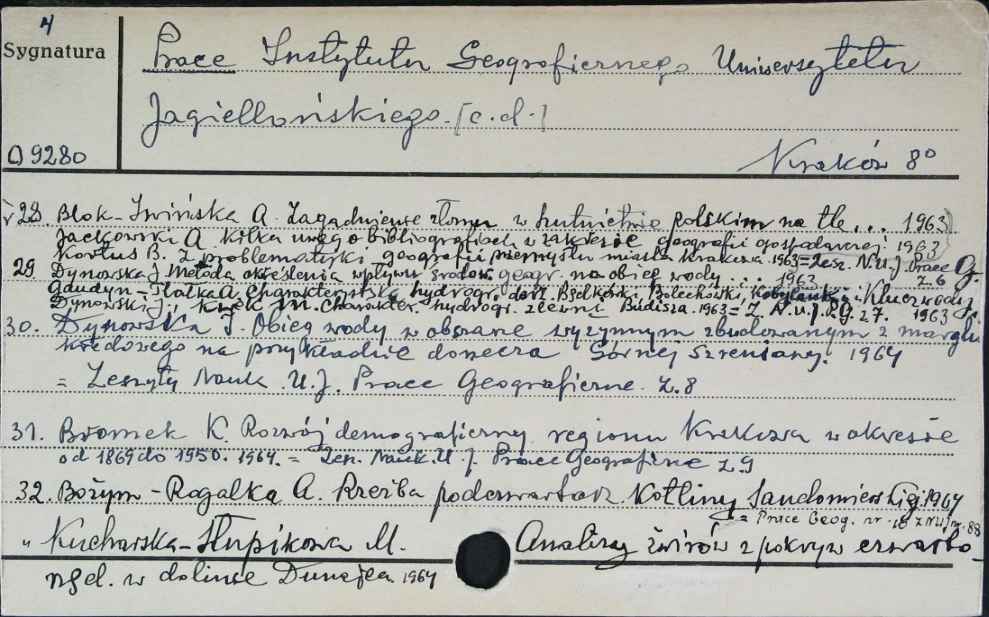 4
Sygnatura
Prace Instytutu Geograficznego Uniwersytetu
Jagiellońskiego. [c.d.]
D 9280
Kraków 8°
28. Blok-Iwińska A. Zagadnienie złomu w hutnictwie polskim na tle... 1963
Jackowski A. Kilka uwag o bibliografiach w zakresie geografii gospodarczej 1963
Kortus B. Z problematyki geografii przemysłu miasta Krakowa. 1963 = Zesz. N.U.J. Prace G. z 6
29. Dynowska J. Metoda określenia wpływu środow. geogr. na obieg wody... 1963
Gdudyn-Tlałka A. Charakterystyka hydrogr. dorz. Będkówki, Bolechówki, Kobylanki i Kluczwody
Dynowski J., M. Charakter. hydrogr. zlewni Budisza. 1963 = Z. N.U.J. P.G. z 7. 1963
30. Dynowska J. Obieg wody w obszarze wyżynnym zbudowanym z margli
kredowego na przykładzie dorzecza Górnej Szreniawy. 1964
= Zeszyty Nauk. U.J. Prace Geograficzne. z. 8
31. Bromek K. Rozwój demograficzny regionu Krakowa w okresie
od 1869 do 1950. 1964. = Zesz. Nauk. U.J. Prace Geograficzne z 9
32. Bożym-Rogalka A. Rzeźba podczwartorz. Kotliny Sandomierskiej 1964
= Prace Geog. nr. 10 z NUJ nr. 88
" Kucharska-Słupikowa M. Analizy żwirów z pokryw czwarto-
rzęd. w dolinie Dunajca 1964